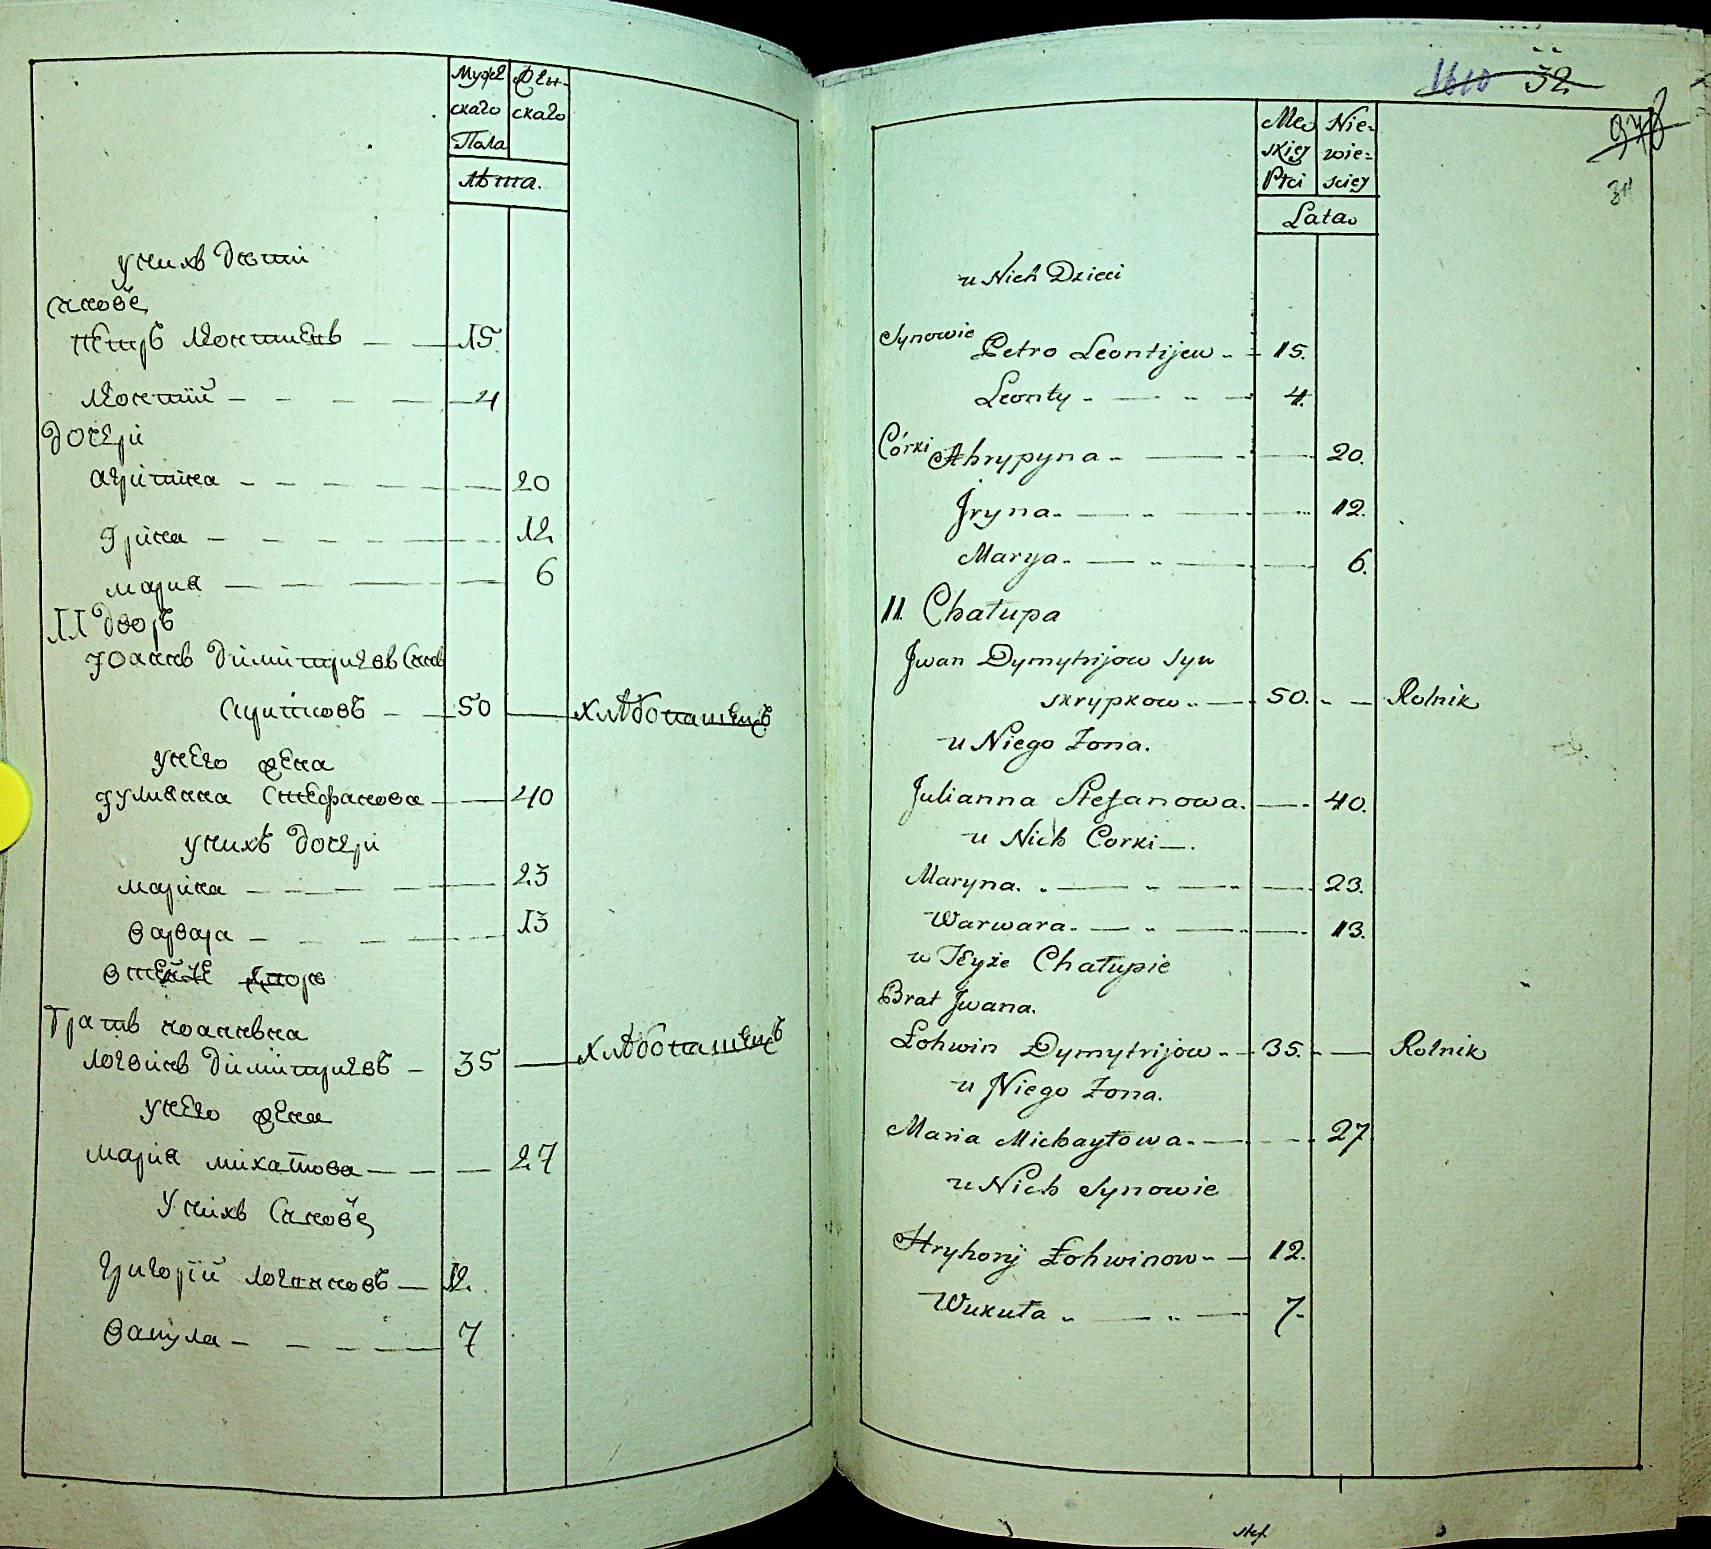 Мужескаго Пола
Женскаго
Лѣта.
у нихъ дѣти
Сыновѣ
Петръ Леонтиевъ 15
Леонтій 4
дочери
Агріпіна 20
Іріна 12
Мария 6
11 дворъ
Іоаннъ Дімітриевъ Сынъ
Скріпковъ 50 хлѣбопашецъ
у него жена
Іулианна Стефанова 40
у нихъ дочери
Маріна 23
Варвара 13
в тейже дворѣ
Братъ Иоаннвна
Логвінъ Дімітриевъ 35 хлѣбопашецъ
у него жена
Марія Михайлова 27
у нихъ Сыновѣ
Григорій Логвиновъ 12
Вакула 7
1610 32.
978
34
Męskiey Płci
Niewieściey
Lata
u Nich Dzieci
Synowie Petro Leontijew 15.
Leonty 4.
Córki Ahrypyna 20.
Jryna 12.
Marya 6.
11. Chałupa
Jwan Dymytrijow Syn
Skrypkow 50. Rolnik
u Niego Żona.
Julianna Stefanowa. 40.
u Nich Corki
Maryna. 23.
Warwara. 13.
w Teyże Chałupie
Brat Jwana.
Łohwin Dymytrijow 35. Rolnik
u Niego Żona.
Maria Michayłowa. 27
u Nich Synowie
Hryhorij Łohwinow 12.
Wukuła 7.